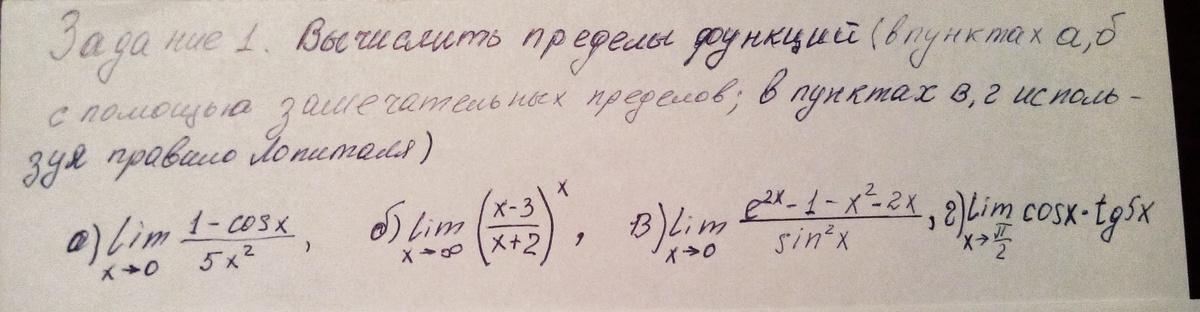 Задание 1. Вычислить пределы функций (в пунктах а, б
с помощью замечательных пределов; в пунктах в, г исполь-
зуя правило Лопиталя)
а) lim x→0 (1-cosx)/(5x²), б) lim x→∞ ((x-3)/(x+2))^x, в) lim x→0 (e^(2x)-1-x²-2x)/(sin²x), г) lim x→π/2 cosx·tg5x